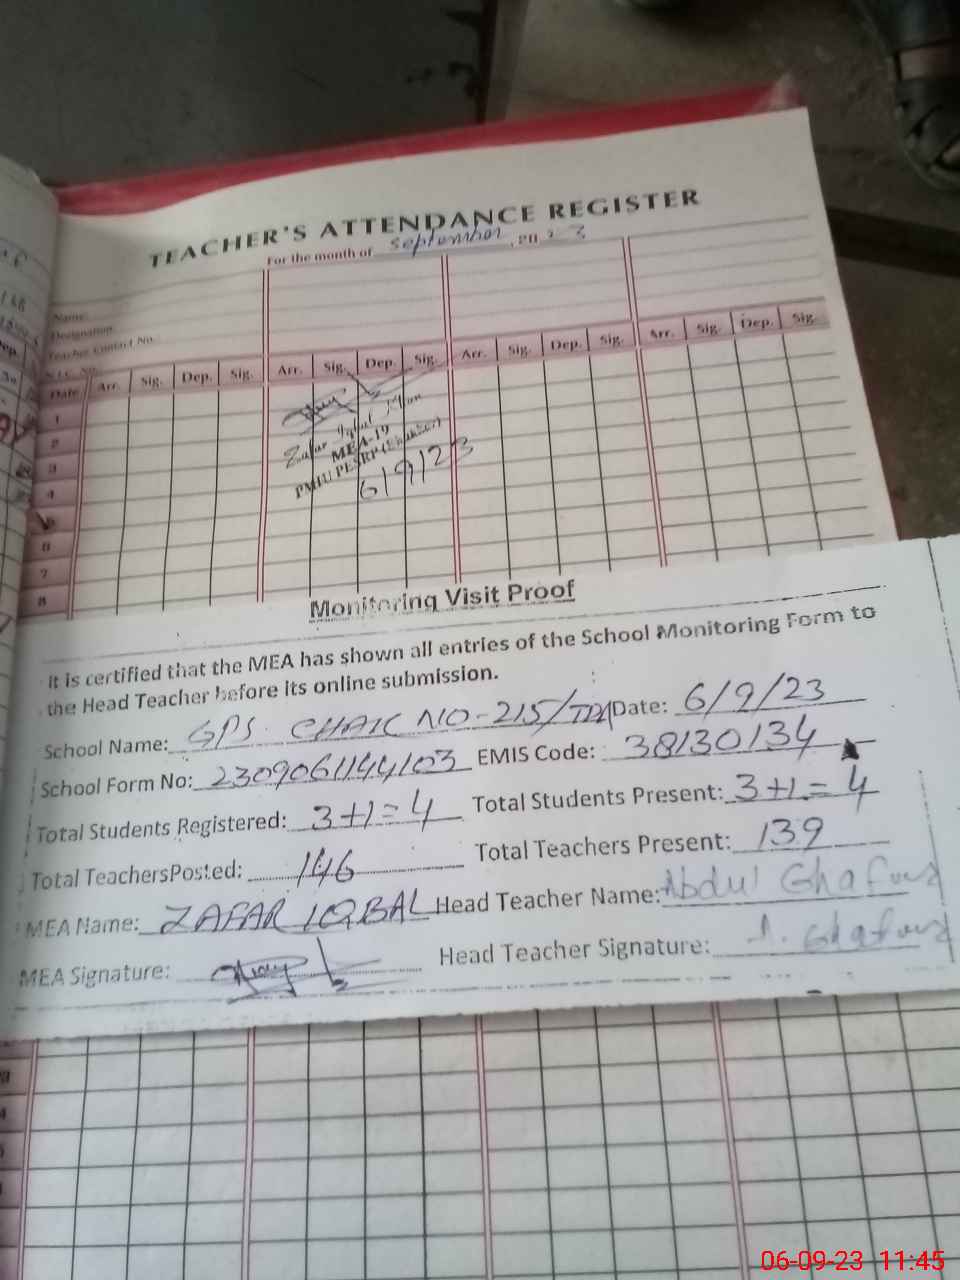 TEACHER'S ATTENDANCE REGISTER
For the month of September, 20 23
Name:
Designation
Teacher Contact No.
N.I.C. No.
Date Arr. Sig. Dep. Sig. Arr. Sig. Dep. Sig. Arr. Sig. Dep. Sig. Arr. Sig. Dep. Sig.
1
2
3
4
6
7
8
Zafar Iqbal
MEA-19
PMIU PESRP (Bhakkar)
6/9/23
Monitoring Visit Proof
It is certified that the MEA has shown all entries of the School Monitoring Form to
the Head Teacher before its online submission.
School Name: GPS. CHAK NO-215/TDA Date: 6/9/23
School Form No: 2309061144103 EMIS Code: 38130134
Total Students Registered: 3+1=4 Total Students Present: 3+1=4
Total TeachersPosted: 146 Total Teachers Present: 139
MEA Name: ZAFAR IQBAL Head Teacher Name: Abdul Ghafoor
MEA Signature: Head Teacher Signature: A. Ghafoor
06-09-23 11:45